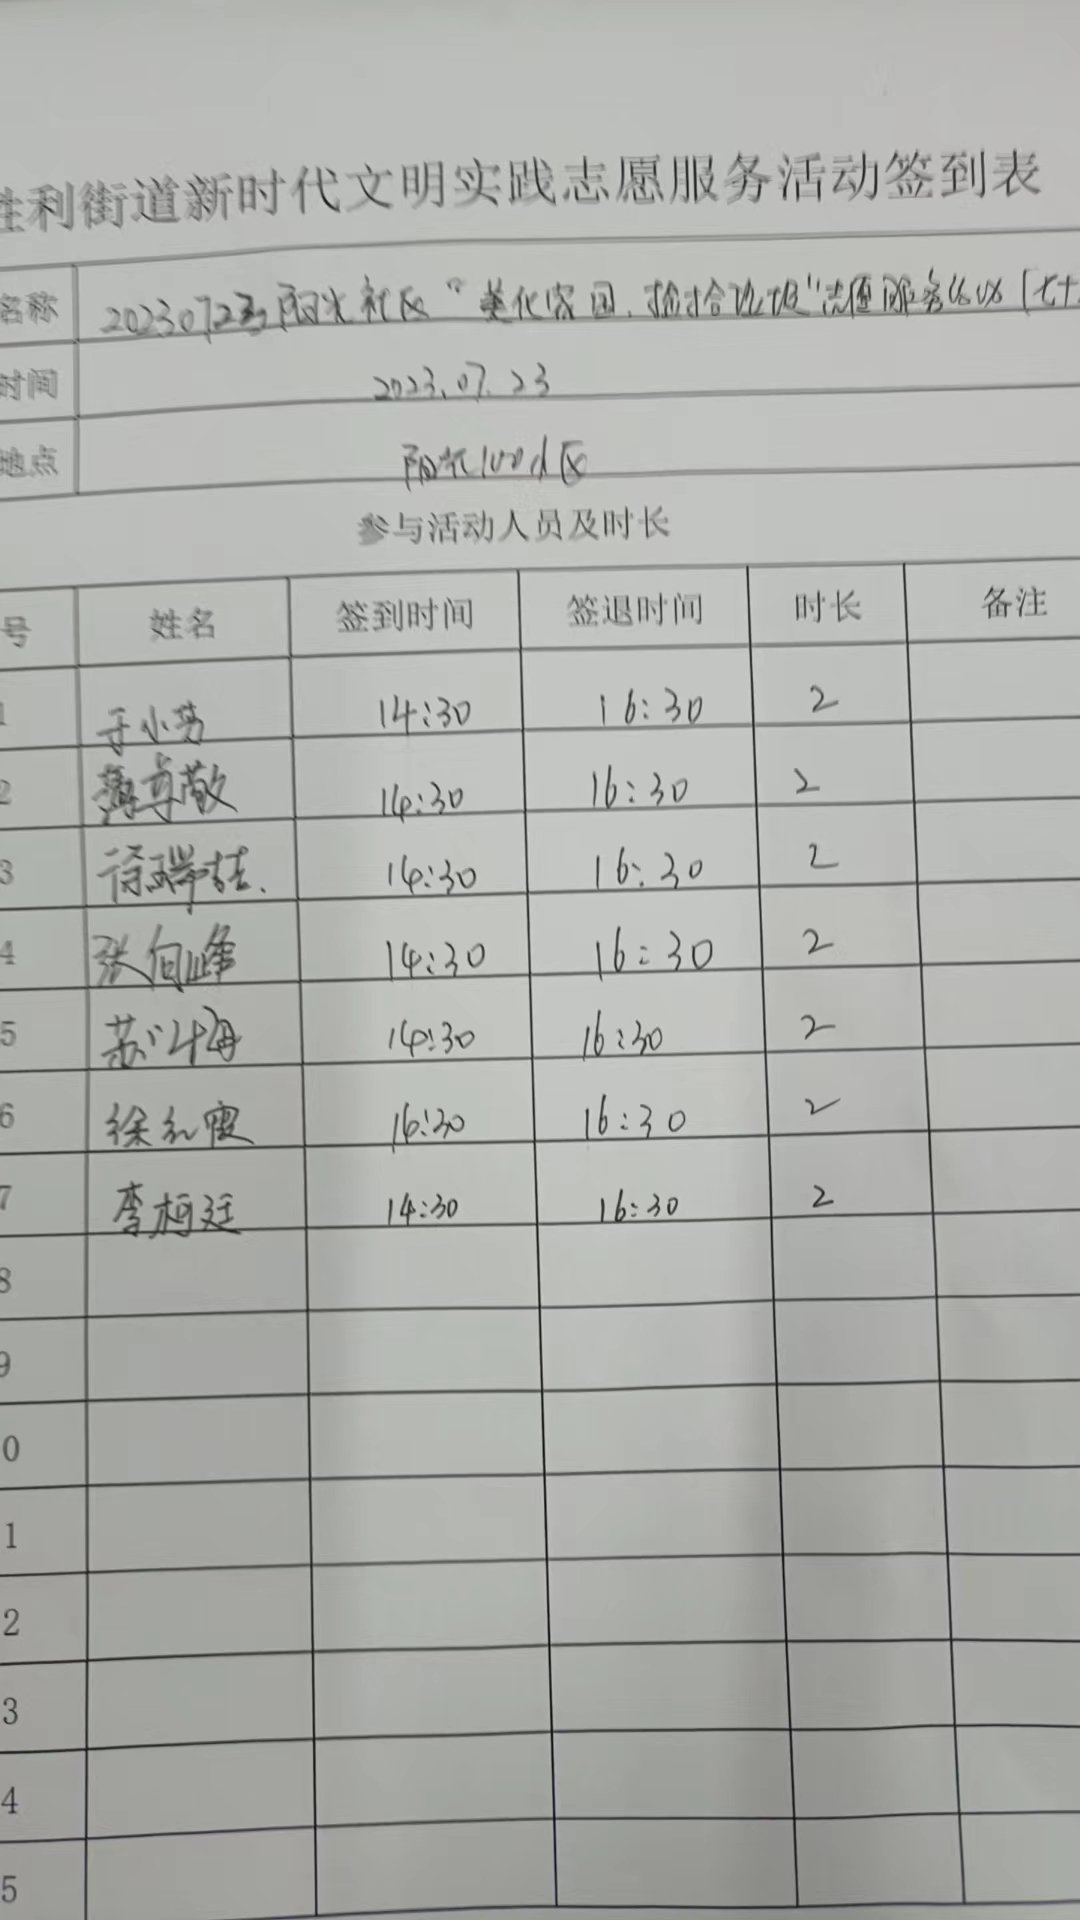 胜利街道新时代文明实践志愿服务活动签到表
名称 20230723阳光社区“美化家园、捡拾垃圾”志愿服务活动（七十
时间 2023.07.23
地点 阳光100小区
参与活动人员及时长
号 姓名 签到时间 签退时间 时长 备注
1 于小芳 14:30 16:30 2
2 薄尊敬 14:30 16:30 2
3 徐瑞喆 14:30 16:30 2
4 张向峰 14:30 16:30 2
5 苏 海 14:30 16:30 2
6 徐红霞 16:30 16:30 2
7 李柯廷 14:30 16:30 2
8
9
0
1
2
3
4
5